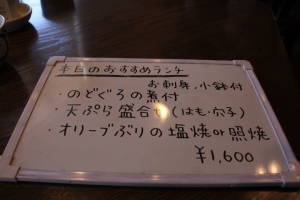 本日のおすすめランチ
お刺身、小鉢付
・のどぐろの煮付
・天ぷら盛合せ(はも・穴子)
・オリーブぶりの塩焼or照焼
¥1,600